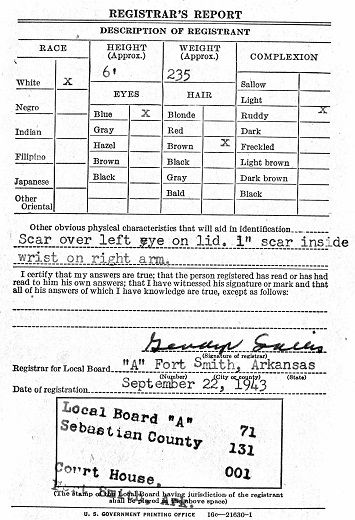 REGISTRAR'S REPORT
DESCRIPTION OF REGISTRANT
RACE
HEIGHT (Approx.)
WEIGHT (Approx.)
COMPLEXION
6'
235
White X
Sallow
Light
EYES
HAIR
Negro
Blue X
Blonde
Ruddy X
Gray
Red
Dark
Indian
Hazel
Brown X
Freckled
Filipino
Brown
Black
Light brown
Japanese
Black
Gray
Dark brown
Other Oriental
Bald
Black
Other obvious physical characteristics that will aid in identification
Scar over left eye on lid. 1" scar inside
wrist on right arm.
I certify that my answers are true; that the person registered has read or has had
read to him his own answers; that I have witnessed his signature or mark and that
all of his answers of which I have knowledge are true, except as follows:
(Signature of registrar)
Registrar for Local Board "A" Fort Smith, Arkansas
(Number) (City or county) (State)
Date of registration September 22, 1943
Local Board "A" 71
Sebastian County 131
001
Court House,
Ark.
(The stamp of the Local Board having jurisdiction of the registrant
shall be placed in the above space)
U. S. GOVERNMENT PRINTING OFFICE 16c—21630-1